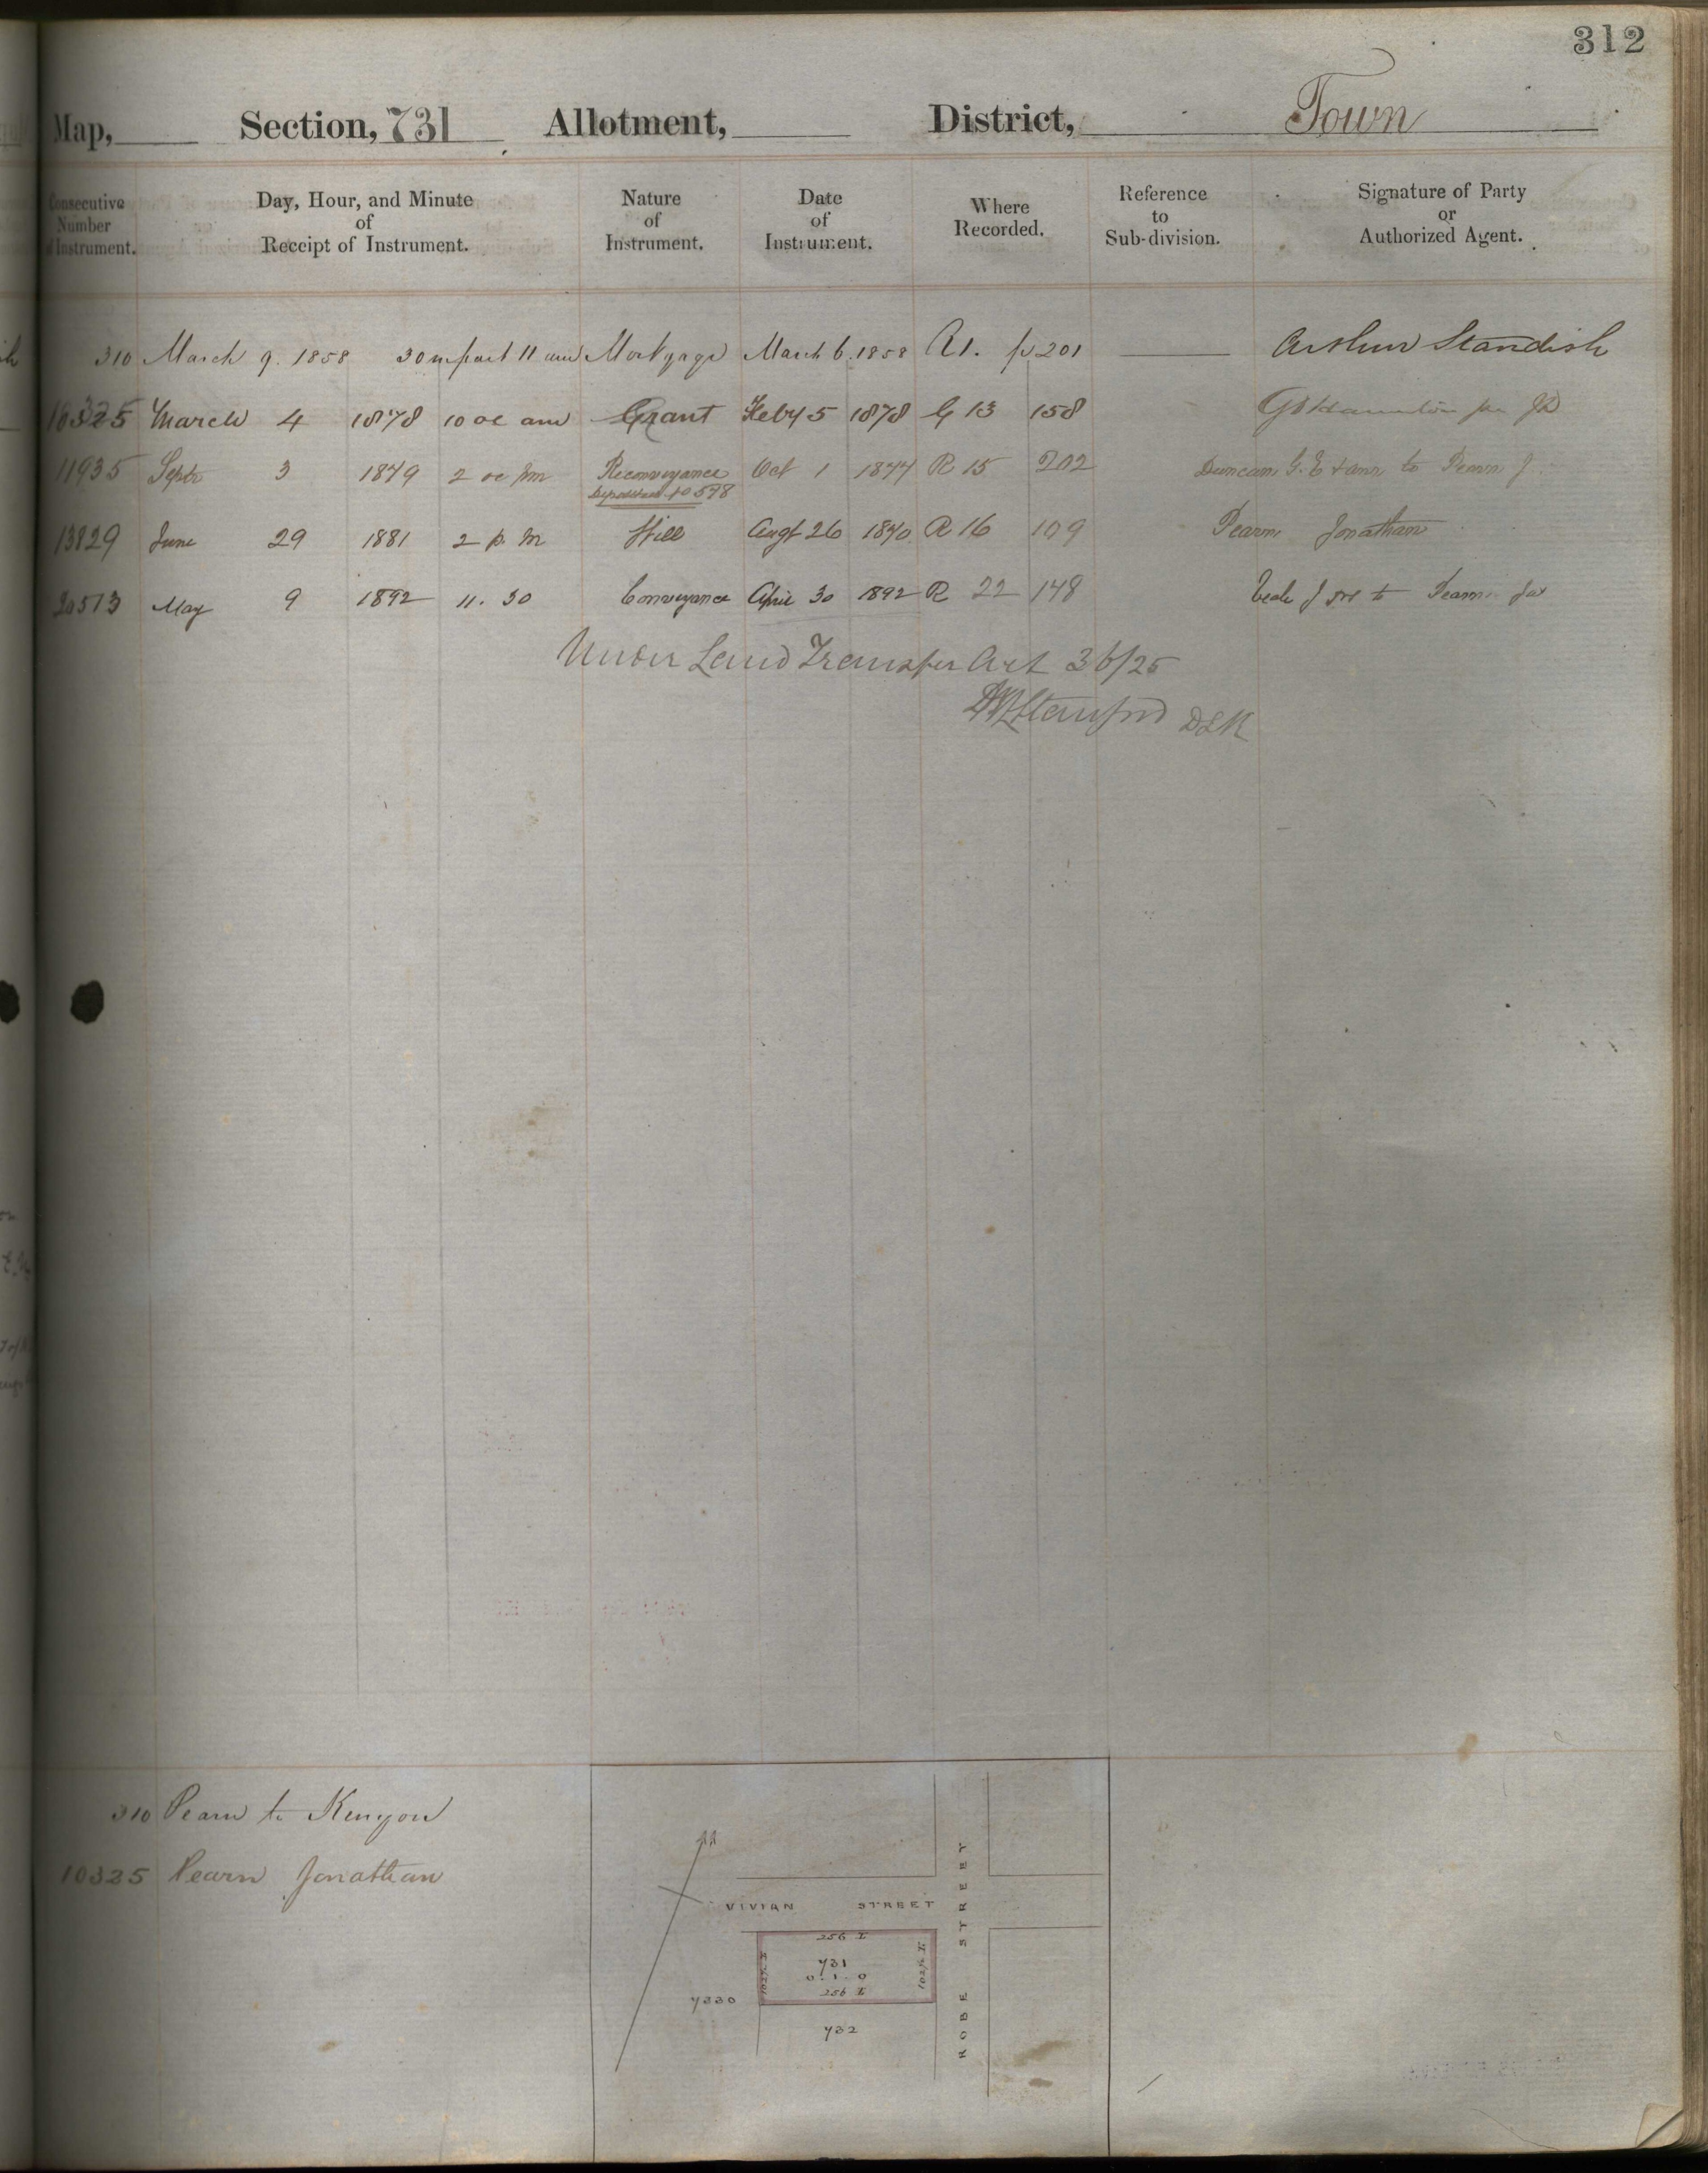 312
Map, Section, 731 Allotment, District, Town
Consecutive Number of Instrument. Day, Hour, and Minute of Receipt of Instrument. Nature of Instrument. Date of Instrument. Where Recorded. Reference to Sub-division. Signature of Party or Authorized Agent.
310 March 9. 1858 30 m past 11 am Mortgage March 6. 1858 R1. p 201 Arthur Standish
10325 March 4 1878 10 oc am Grant Feby 5 1878 G 13 158
11935 Septr 3 1879 2 oc pm Reconveyance Oct 1 1877 R 15 202 Duncan G. E & anr to Pearn J.
13829 June 29 1881 2 p. m Will Augt 26 1870 R 16 109 Pearn Jonathan
20513 May 9 1892 11. 30 Conveyance April 30 1892 R 22 148 to Pearn
Under Land Transfer Act 36/25
DLR
310 Pearn to Kenyon
10325 Pearn Jonathan
VIVIAN STREET
ROBE STREET
256 L
731
0. 1. 0
256 L
732